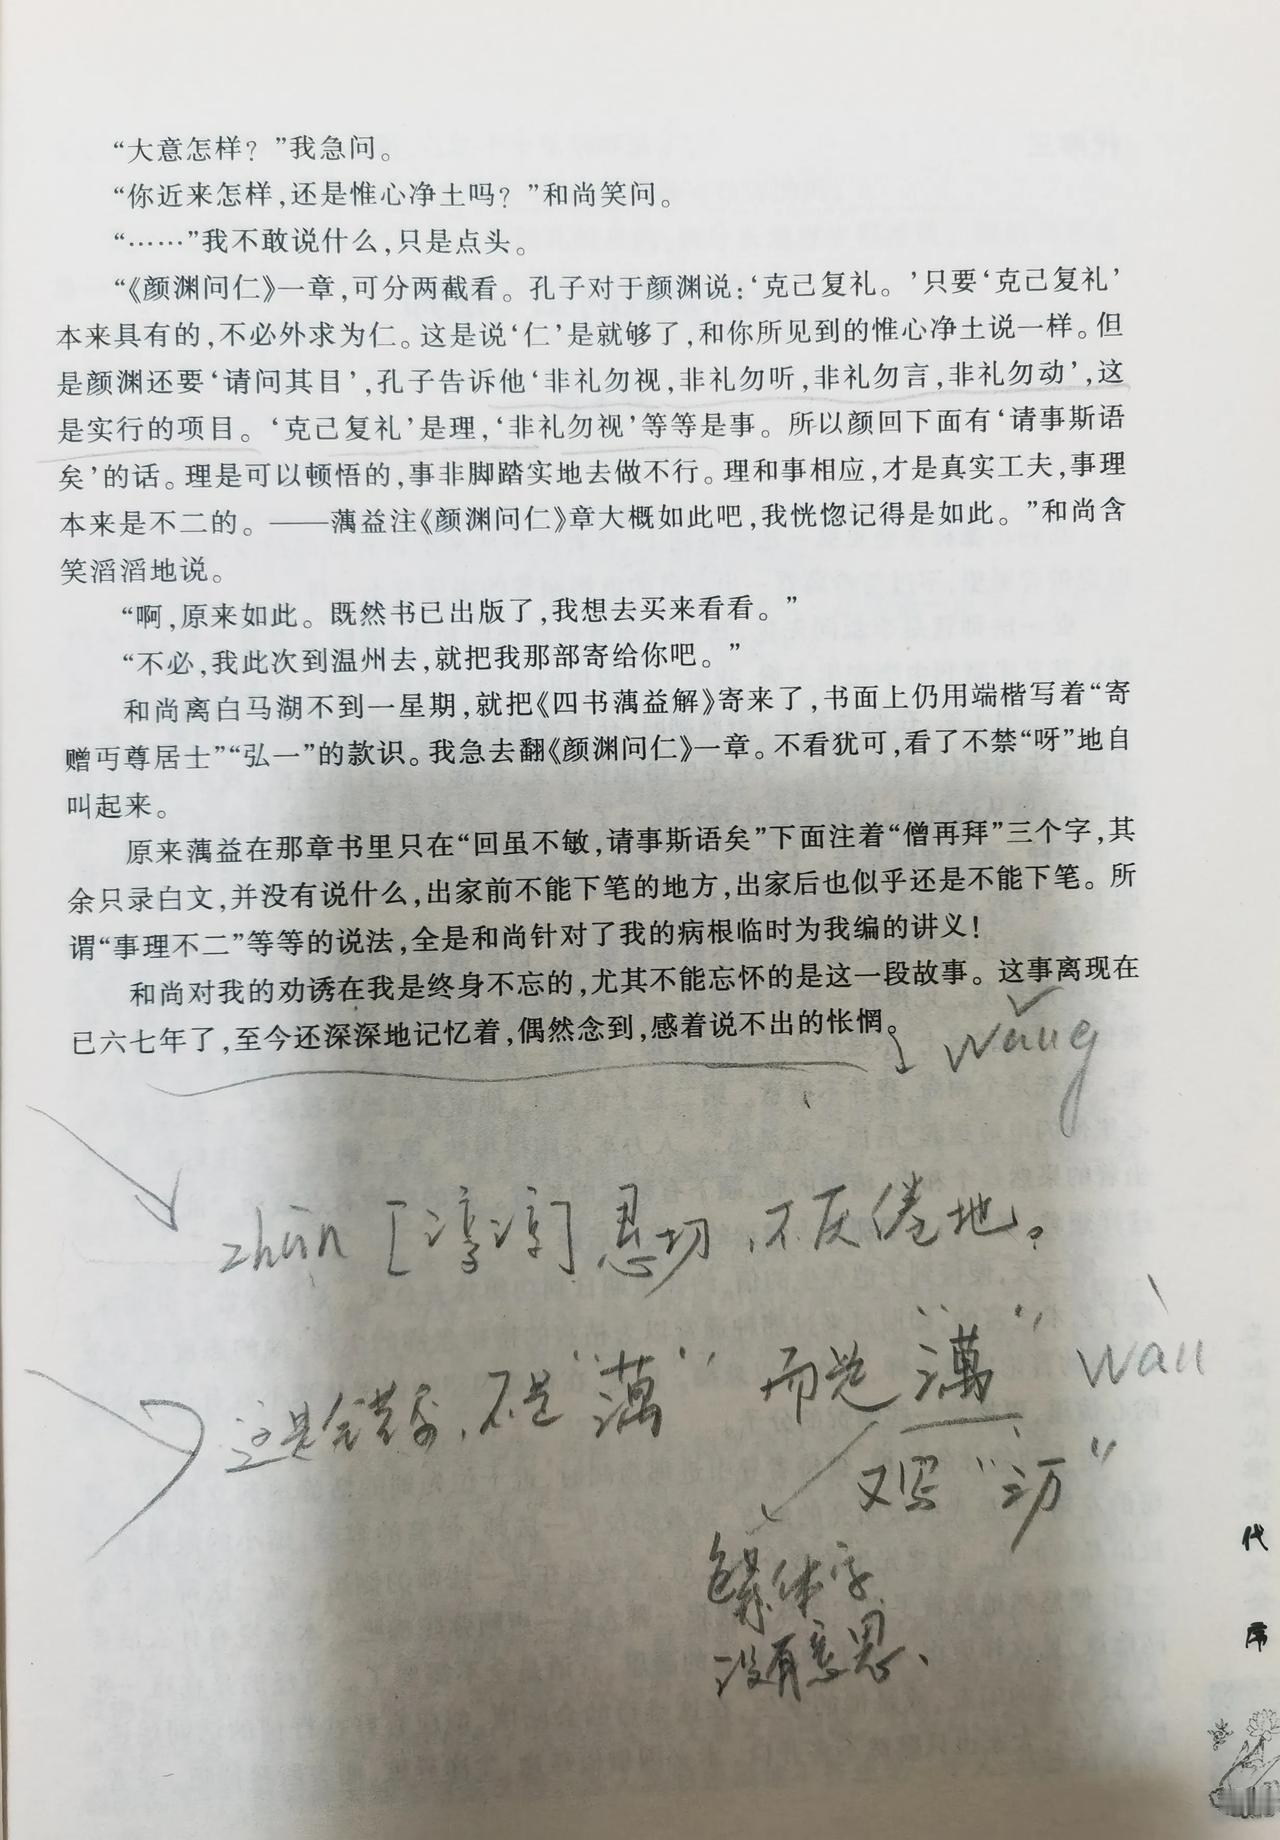 “大意怎样？”我急问。
“你近来怎样，还是惟心净土吗？”和尚笑问。
“……”我不敢说什么，只是点头。
“《颜渊问仁》一章，可分两截看。孔子对于颜渊说：‘克己复礼。’只要‘克己复礼’
本来具有的，不必外求为仁。这是说‘仁’是就够了，和你所见到的惟心净土说一样。但
是颜渊还要‘请问其目’，孔子告诉他‘非礼勿视，非礼勿听，非礼勿言，非礼勿动’，这
是实行的项目。‘克己复礼’是理，‘非礼勿视’等等是事。所以颜回下面有‘请事斯语
矣’的话。理是可以顿悟的，事非脚踏实地去做不行。理和事相应，才是真实工夫，事理
本来是不二的。——蕅益注《颜渊问仁》章大概如此吧，我恍惚记得是如此。”和尚含
笑滔滔地说。
“啊，原来如此。既然书已出版了，我想去买来看看。”
“不必，我此次到温州去，就把我那部寄给你吧。”
和尚离白马湖不到一星期，就把《四书蕅益解》寄来了，书面上仍用端楷写着“寄
赠丏尊居士”“弘一”的款识。我急去翻《颜渊问仁》一章。不看犹可，看了不禁“呀”地自
叫起来。
原来蕅益在那章书里只在“回虽不敏，请事斯语矣”下面注着“僧再拜”三个字，其
余只录白文，并没有说什么，出家前不能下笔的地方，出家后也似乎还是不能下笔。所
谓“事理不二”等等的说法，全是和尚针对了我的病根临时为我编的讲义！
和尚对我的劝诱在我是终身不忘的，尤其不能忘怀的是这一段故事。这事离现在
已六七年了，至今还深深地记忆着，偶然念到，感着说不出的怅惘。
wǎng
zhūn [谆谆] 恳切，不厌倦地。
这是错字，不是“蕅” 而是“澫” wàn
又写“沥”
繁体字
没有意思、
代
序